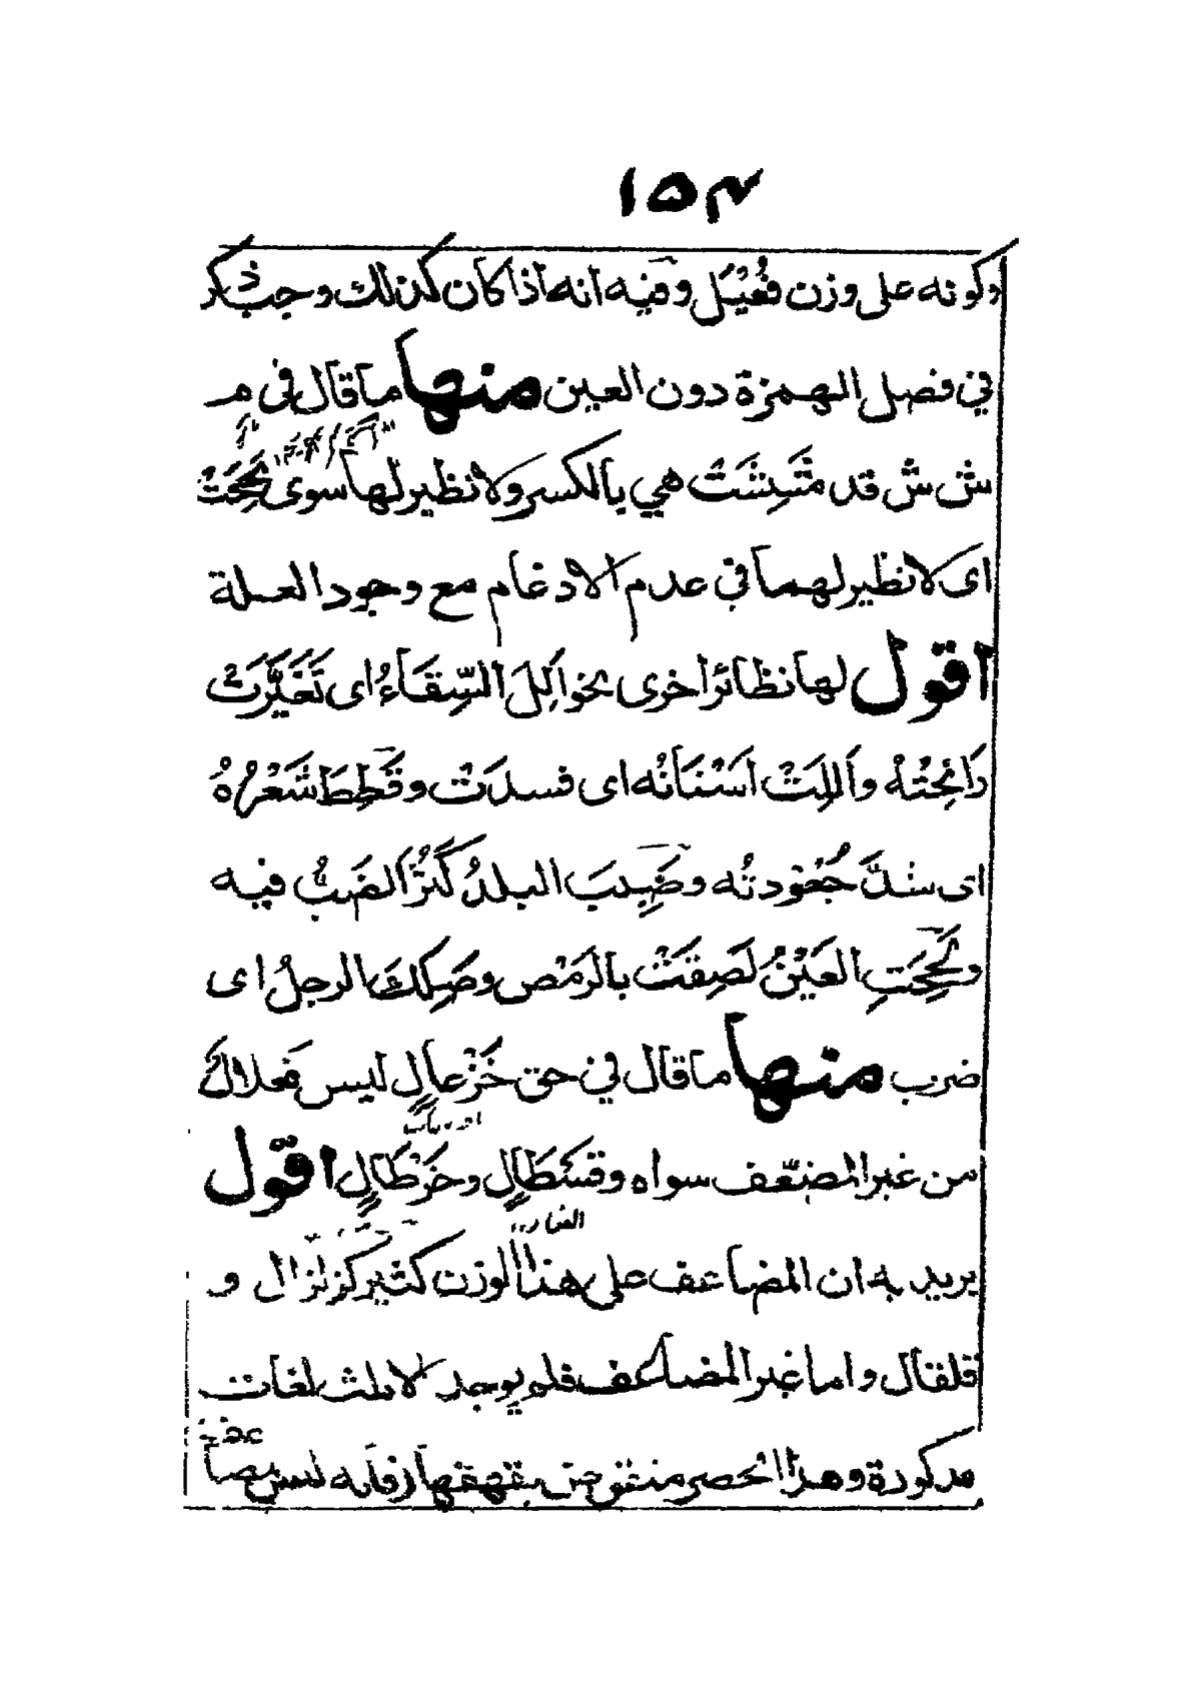 ١٥٣
وكونه على وزن فُعَيْل وفيه انه اذا كان كذلك وجب ذكر
في فصل الهمزة دون العين منها ما قال في م
ش ش قد مَشِشَتْ هي بالكسر ولا نظير لها سوى لَحِحَتْ
اى لا نظير لهما في عدم الادغام مع وجود العلة
اقول لها نظائر اخرى نحو اَلِلَ السِّقَاءُ اى تَغَيَّرَتْ
رَائِحَتُهُ واَلِلَتْ اَسْنَانُه اى فسدَتْ وقَطِطَ شَعْرُهُ
اى شدَّ جُعُودتُه وضَبِبَ البلدُ كَثُرَ الضَبُّ فيه
ولَحِحَتِ العَيْنُ لَصِقَتْ بالرَمَصِ وصَكِكَ الرجلُ اى
ضرب منها ما قال في حق خَزْعالٍ ليس فَعلالٌ
من غير المضعّف سواه وقَسْطَالٍ وخَرْطَالٍ اقول
يريد به ان المضاعف على هذا الوزن كثير كزلزال و
قلقال واما غير المضاعف فلم يوجد الا ثلث لغات
مذكورة وهذا الحصر منتقض بقهقهار فانه ليس